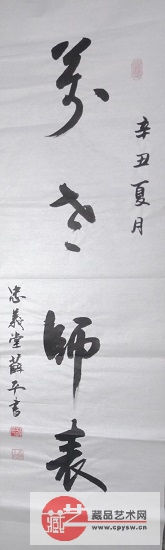 辛丑夏月
萬世師表
忠義堂薛平書
藏品艺术网
www.cpysw.cn